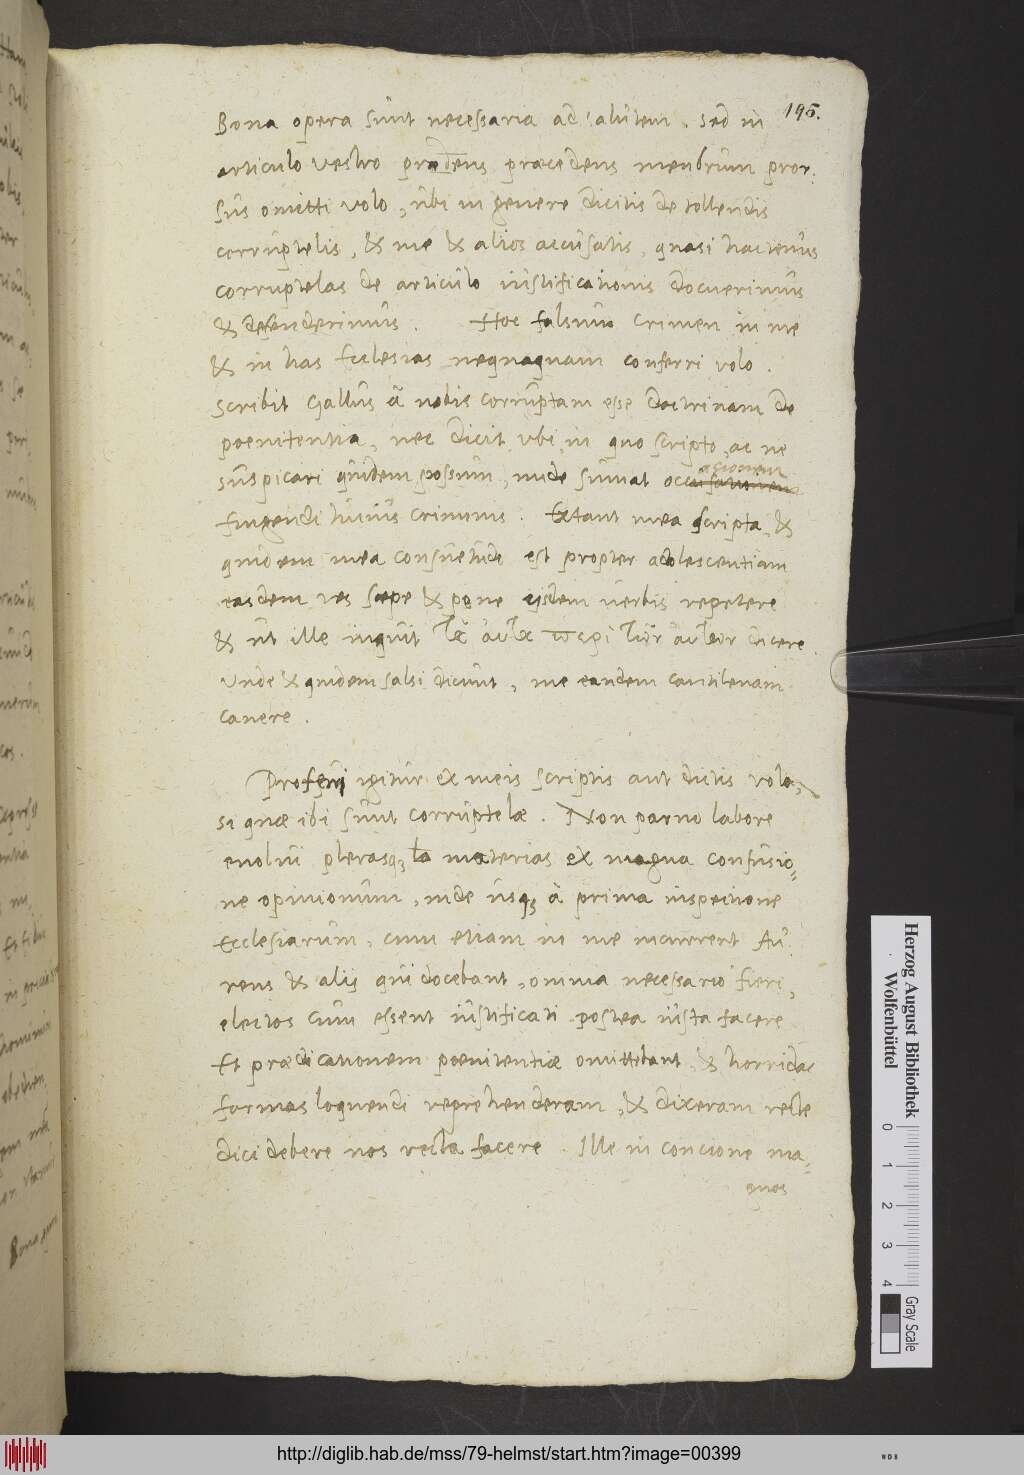 195.
Bona opera sunt necessaria ad salutem. sed in
articulo vestro praedens praecedens menbrum pror-
sus omitti volo, ubi in genere dicitis de tollendis
corruptelis, & me & alios accusatis, quasi hactenus
corruptelas de articulo iustificationis docuerimus
& defenderimus. Hoc falsum crimen in me
& in has Ecclesias nequaquam conferri volo.
Scribit Gallus à nobis corruptam esse doctrinam de
poenitentia, nec dicit ubi, in quo scripto, ac ne
suspicari quidem possum, unde sumat occasionem
fingendi huius criminis. Extant mea scripta, &
quidem mea consuetudo est propter adolescentiam
easdem res saepe & pene ijsdem verbis repetere
& ut ille inquit τὰ αὐτὰ περὶ τῶν αὐτῶν dicere.
Unde & quidem salsi dicunt, me eandem cantilenam
canere.
Proferri igitur ex meis scriptis aut dictis volo,
si quae ibi sunt corruptelae. Non paruo labore
euolui plerasq; materias ex magna confusio-
ne opinionum, inde usq; à prima inspectione
Ecclesiarum, cum etiam in me incurrerent Au-
rens & alij qui docebant, omnia necessario fieri,
electos cum essent iustificati postea iusta facere
Et praedicationem poenitentiae omittebant, & horridas
formas loquendi reprehenderam, & dixeram recte
dici debere nos recta facere. Ille in concione ma-
gnos
Herzog August Bibliothek
Wolfenbüttel
0 1 2 3 4
Gray Scale
http://diglib.hab.de/mss/79-helmst/start.htm?image=00399
WDB